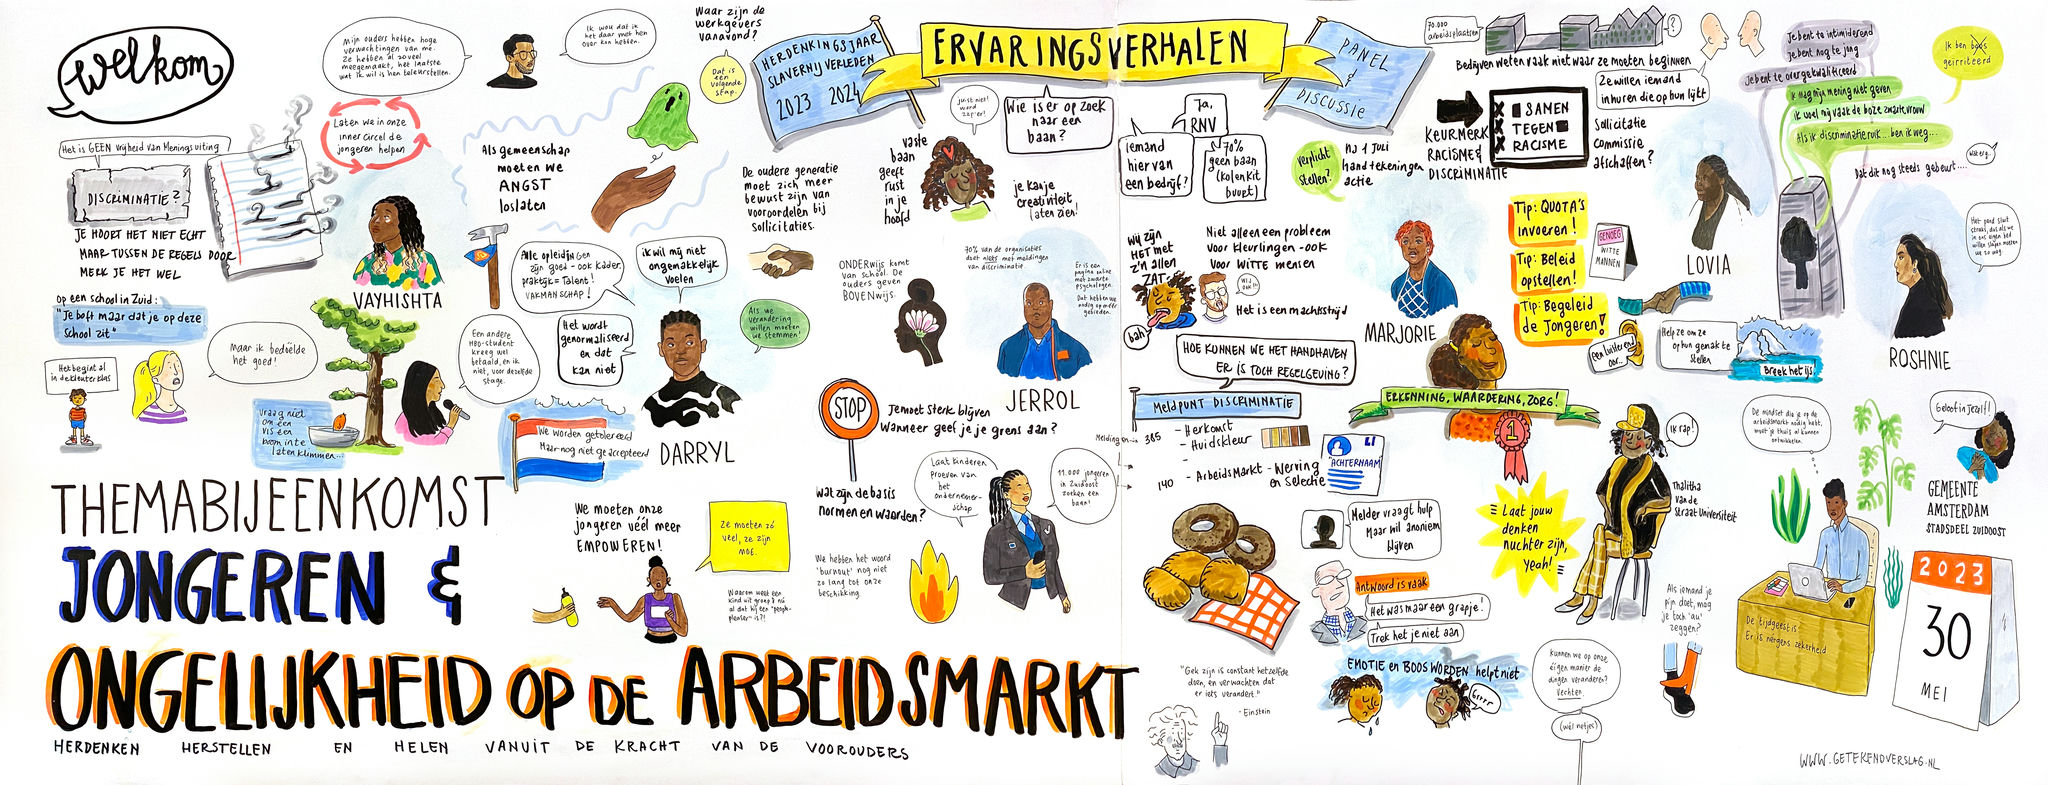 welkom
Mijn ouders hebben hoge
verwachtingen van me.
Ze hebben al zoveel
meegemaakt, het laatste
wat ik wil is hen teleurstellen.
Ik wou dat ik
het daar met hen
over kon hebben.
Waar zijn de
werkgevers
vanavond?
Dat is
een
volgende
stap.
HERDENKINGSJAAR
SLAVERNIJVERLEDEN
2023 2024
ERVARINGSVERHALEN
PANEL
&
DISCUSSIE
Het is GEEN vrijheid van Meningsuiting
DISCRIMINATIE?
JE HOORT HET NIET ECHT
MAAR TUSSEN DE REGELS DOOR
MERK JE HET WEL
Laten we in onze
inner circel de
jongeren helpen
VAYHISHTA
Als gemeenschap
moeten we
ANGST
loslaten
op een school in Zuid:
"Je boft maar dat je op deze
school zit"
Het begint al
in de kleuterklas
Maar ik bedoelde
het goed!
Vraag niet
om een
vis een
boom in te
laten klimmen...
Een andere
HBO-student
kreeg wel
betaald, en ik
niet, voor dezelfde
stage.
Alle opleidingen
zijn goed - ook kader.
praktijk = Talent!
VAKMANSCHAP!
ik wil mij niet
ongemakkelijk
voelen
Het wordt
genormaliseerd
en dat
kan niet
Als we
verandering
willen moeten
we stemmen!
DARRYL
We worden getolereerd
Maar nog niet geaccepteerd
De oudere generatie
moet zich meer
bewust zijn van
vooroordelen bij
sollicitaties.
vaste
baan
geeft
rust
in je
hoofd
juist niet!
word
zzp'er!
Wie is er op zoek
naar een
baan?
je kan je
creativiteit
laten zien!
ONDERwijs komt
van school. De
ouders geven
BOVENwijs.
70% van de organisaties
doet niets met meldingen
van discriminatie
Er is een
pagina online
met zwarte
psychologen.
Dat hebben we
nodig op meer
gebieden.
JERROL
STOP
Je moet sterk blijven
Wanneer geef je je grens aan?
Wat zijn de basis
normen en waarden?
Laat kinderen
proeven van
het
ondernemer-
schap
11.000 jongeren
in Zuidoost
zoeken een
baan!
We hebben het woord
'burnout' nog niet
zo lang tot onze
beschikking
We moeten onze
jongeren véél meer
EMPOWEREN!
Ze moeten zó
veel, ze zijn
moe.
Waarom weet een
kind uit groep 8 nú
al dat hij een 'people-
pleaser' is?!
THEMABIJEENKOMST
JONGEREN &
ONGELIJKHEID OP DE ARBEIDSMARKT
HERDENKEN HERSTELLEN EN HELEN VANUIT DE KRACHT VAN DE VOOROUDERS
iemand
hier van
een bedrijf?
Ja,
RNV
70%
geen baan
(kolenkit
buurt)
verplicht
stellen?
NJ 1 JULI
handtekeningen
actie
70.000
arbeidsplaatsen
?
Bedrijven weten vaak niet waar ze moeten beginnen
KEURMERK
RACISME &
DISCRIMINATIE
SAMEN
TEGEN
RACISME
Ze willen iemand
inhuren die op hun lijkt
Sollicitatie
commissie
afschaffen?
Je bent te intimiderend
je bent nog te jong
Je bent te overgekwalificeerd
Ik mag mijn mening niet geven
ik voel mij vaak de boze zwarte vrouw
Als ik discriminatie ruik... ben ik weg...
Ik ben boos
geïrriteerd
Dat dit nog steeds gebeurt....
Wij zijn
HET MET
z'n allen
ZAT
bah!
Niet alleen een probleem
voor kleurlingen - ook
voor WITTE mensen
Wij ook!
Het is een machtsstrijd
HOE KUNNEN WE HET HANDHAVEN
ER IS TOCH REGELGEVING?
MARJORIE
Tip: QUOTA'S
invoeren!
Tip: Beleid
opstellen!
Tip: Begeleid
de Jongeren!
GENOEG
WITTE
MANNEN
LOVIA
Een luisterend
oor...
Help ze om ze
op hun gemak te
stellen
Breek het ijs
ROSHNIE
MELDPUNT DISCRIMINATIE
Meldingen
385
- Herkomst
- Huidskleur
140
- Arbeidsmarkt - Werving
en Selectie
ACHTERNAAM
ERKENNING, WAARDERING, ZORG!
1
Melder vraagt hulp
maar wil anoniem
blijven
Antwoord is vaak
Het was maar een grapje!
Trek het je niet aan
"Gek zijn is constant hetzelfde
doen, en verwachten dat
er iets verandert."
- Einstein
EMOTIE en BOOS WORDEN helpt niet
Grrr
Laat jouw
denken
nuchter zijn,
yeah!
ik rap!
Thalitha
van de
Straat Universiteit
Kunnen we op onze
eigen manier de
dingen veranderen?
Vechten.
(wél netjes)
Als iemand je
pijn doet, mag
je toch 'au'
zeggen?
De mindset die je op de
arbeidsmarkt nodig hebt,
moet je thuis al kunnen
ontwikkelen.
De tijdgeest is:
Er is nergens zekerheid
Geloof in jezelf!
GEMEENTE
AMSTERDAM
STADSDEEL ZUIDOOST
2023
30
MEI
WWW.GETEKENDVERSLAG.NL